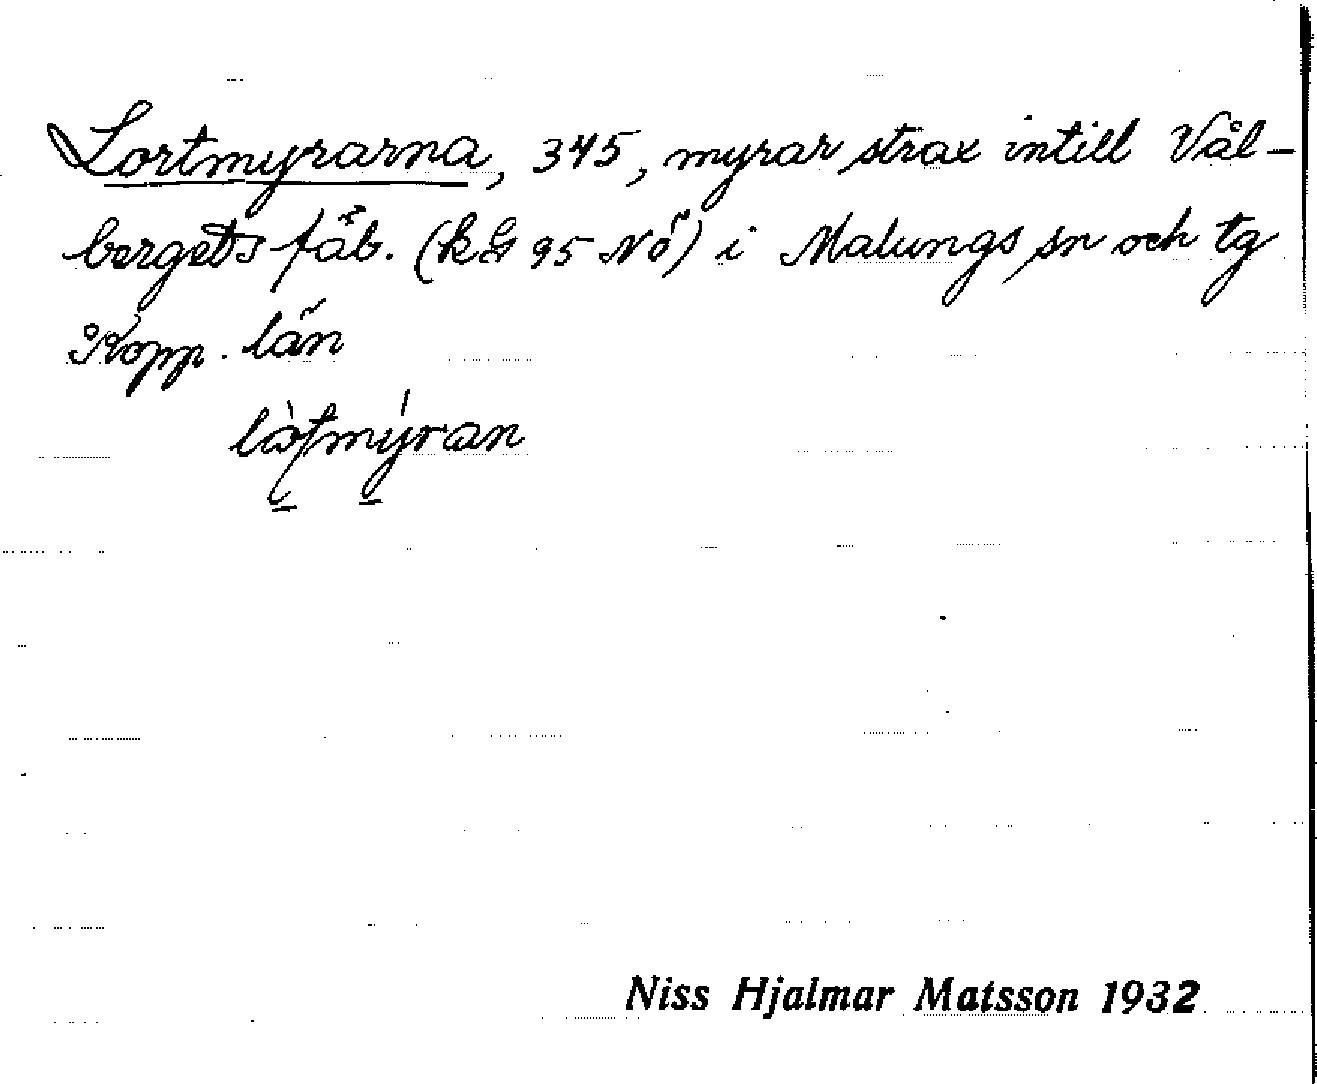 Lortmyrarna, 345, myrar strax intill Vål-
bergets fäb. (kbl 95 NÖ) i Malungs sn och tg
Kopp. län
Niss Hjalmar Matsson 1932